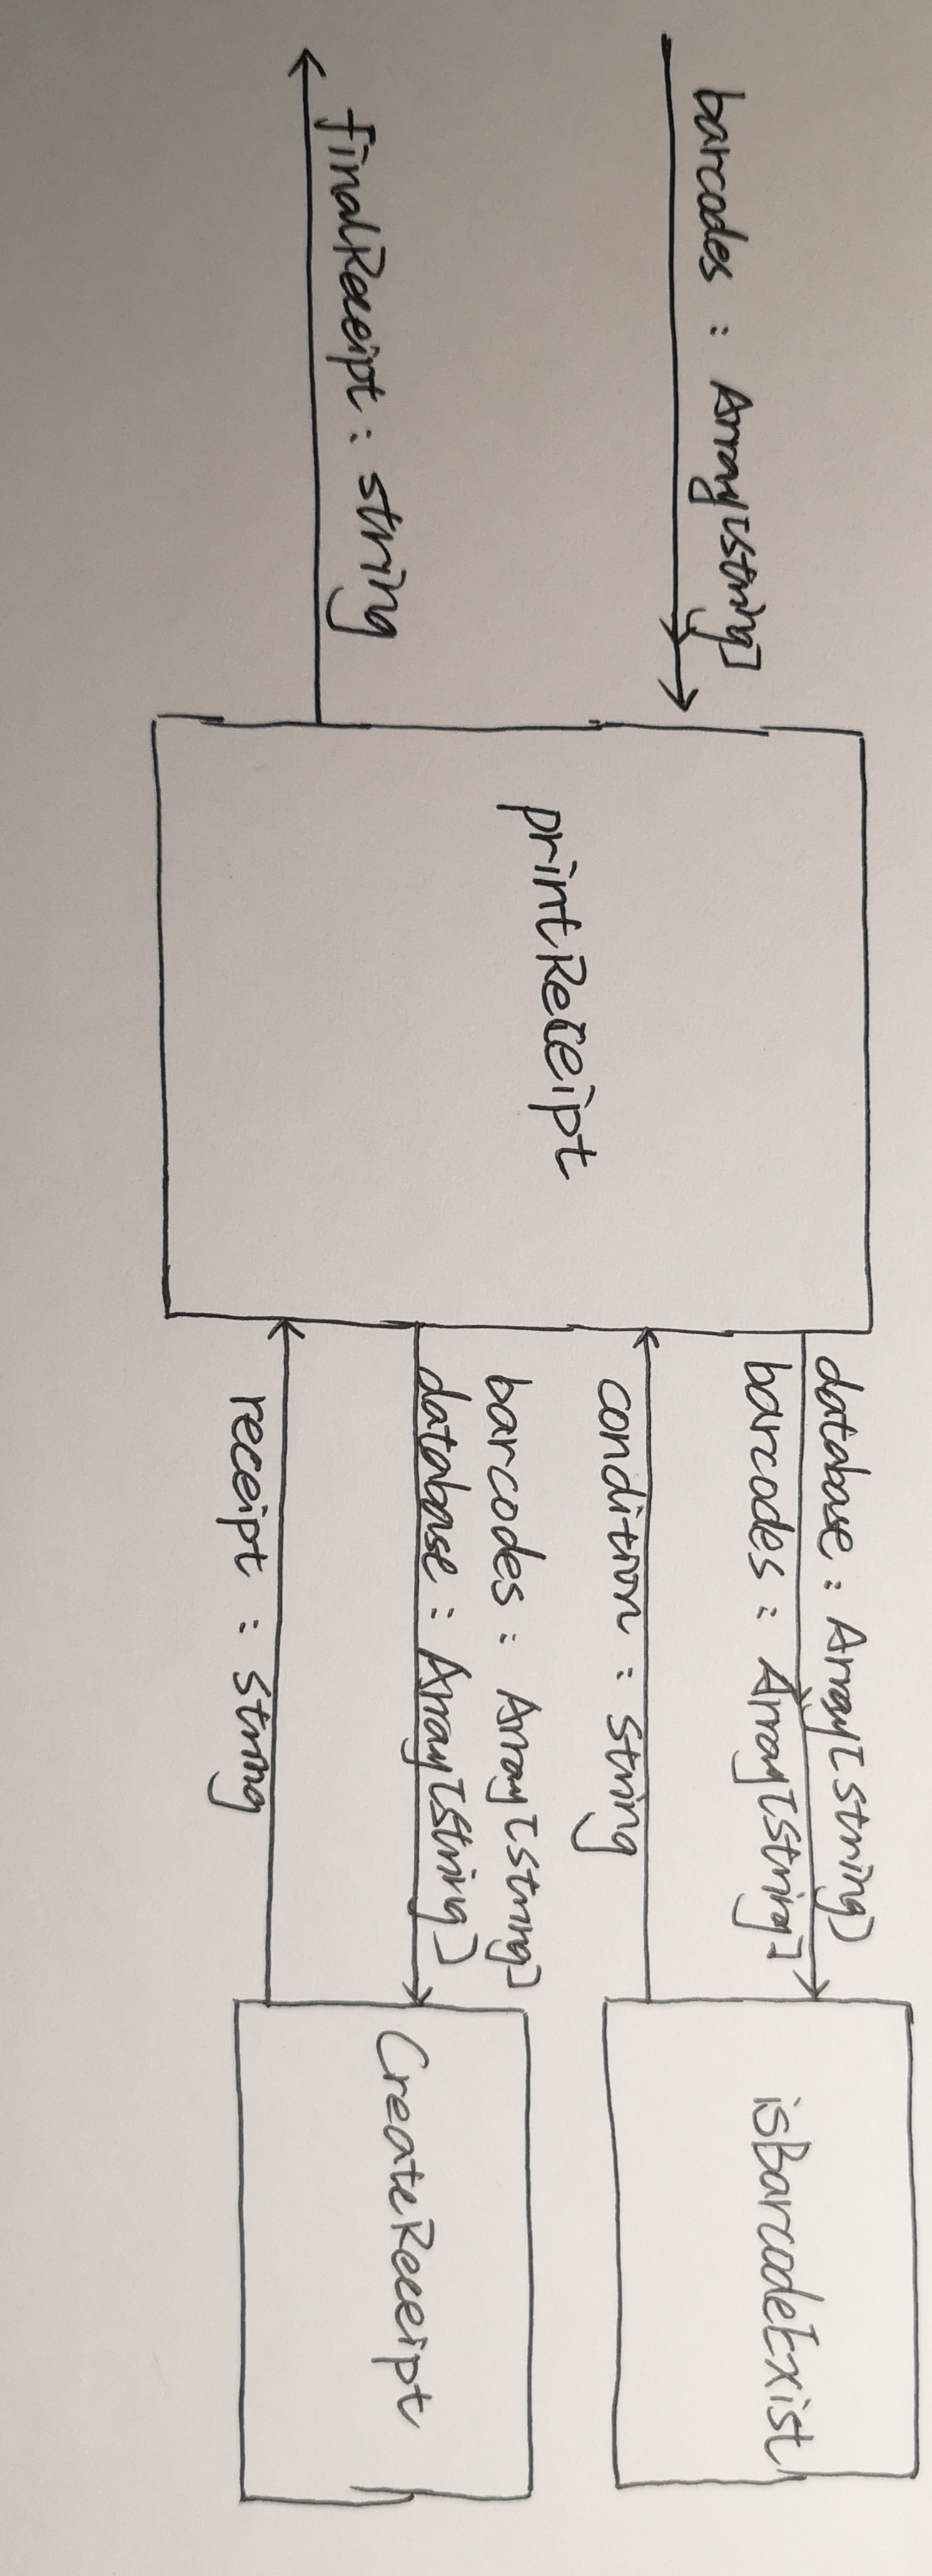 barcodes : Array[string]
finalReceipt : string
printReceipt
database : Array[string]
barcodes : Array[string]
condition : string
barcodes : Array[string]
database : Array[string]
receipt : string
isBarcodeExist
CreateReceipt